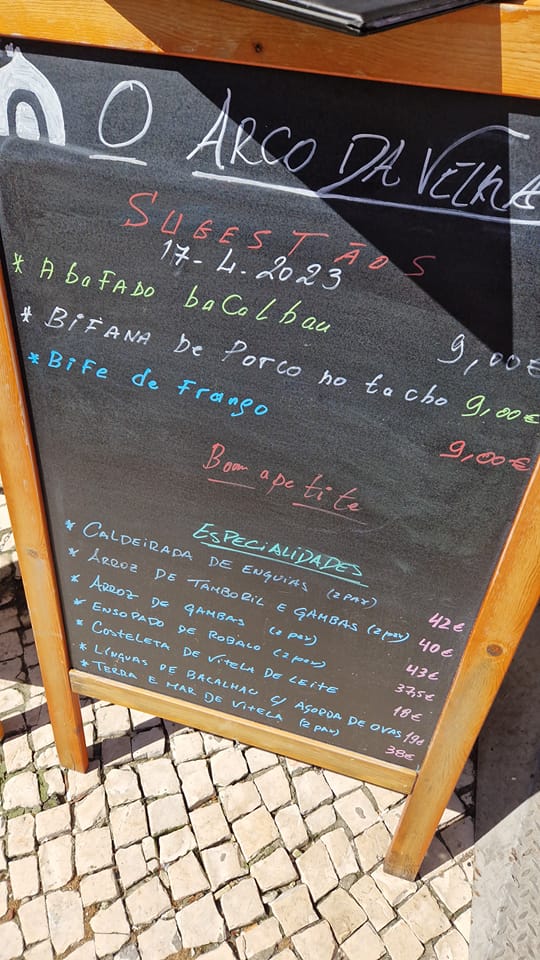 O ARCO DA VELHA
SUGESTÃOS
17-4.2023
* AbaFADO baCalhau 9,00€
* BIFANA De PORCO no tacho 9,00€
* Bife de Frango 9,00€
Bom apetite
ESPECIALIDADES
* CALDEIRADA DE ENGUIAS (2 PAX) 42€
* ARROZ DE TAMBORIL E GAMBAS (2 PAX) 40€
* ARROZ DE GAMBAS (2 PAX) 43€
* ENSOPADO DE ROBALO (2 PAX) 37,5€
* COSTELETA DE VITELA DE LEITE 18€
* LÍNGUAS DE BACALHAU C/ AÇORDA DE OVAS 19€
* TERRA E MAR DE VITELA (2 PAX) 38€